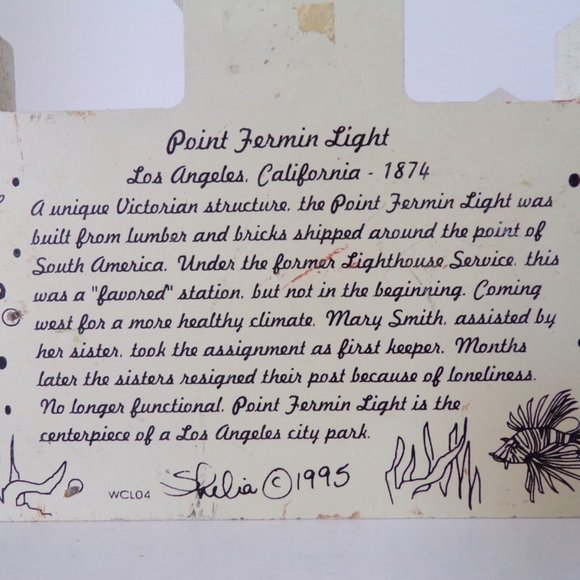 Point Fermin Light
Los Angeles, California - 1874
A unique Victorian structure, the Point Fermin Light was
built from lumber and bricks shipped around the point of
South America. Under the former Lighthouse Service, this
was a "favored" station, but not in the beginning. Coming
west for a more healthy climate, Mary Smith, assisted by
her sister, took the assignment as first keeper. Months
later the sisters resigned their post because of loneliness.
No longer functional, Point Fermin Light is the
centerpiece of a Los Angeles city park.
WCL04 Shelia ©1995